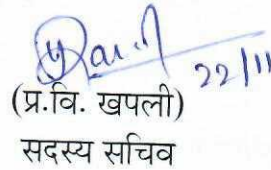 22/11
(प्र.वि. खपली)
सदस्य सचिव